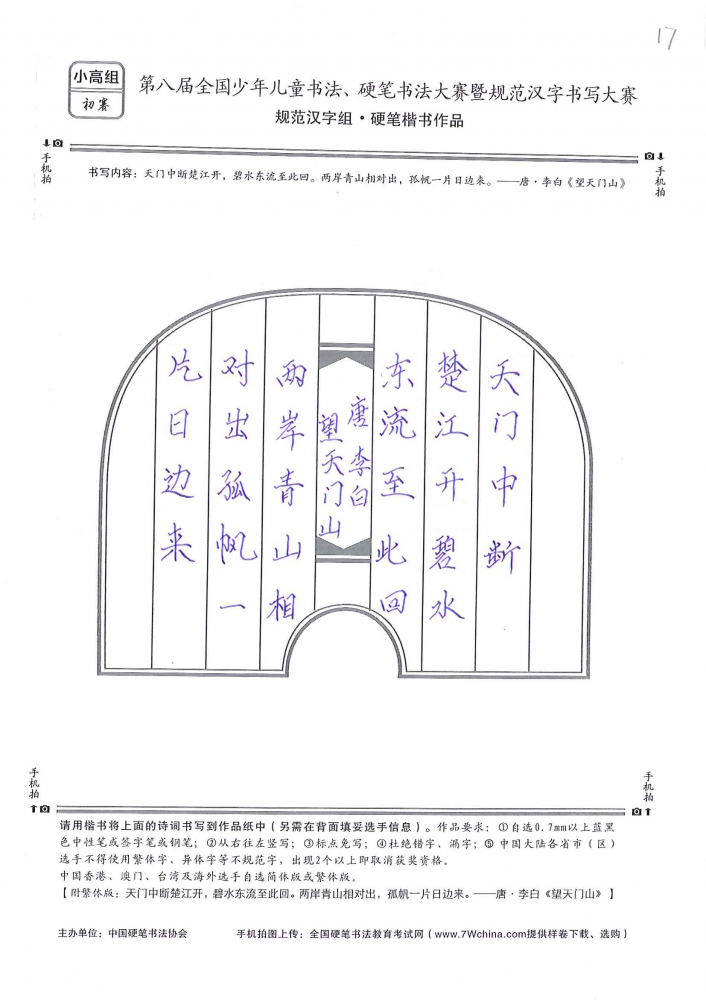 17
小高组
初赛
第八届全国少年儿童书法、硬笔书法大赛暨规范汉字书写大赛
规范汉字组·硬笔楷书作品
手机拍
手机拍
书写内容：天门中断楚江开，碧水东流至此回。两岸青山相对出，孤帆一片日边来。——唐·李白《望天门山》
天门中断
楚江开碧水
东流至此回
唐李白
望天门山
两岸青山相
对出孤帆一
片日边来
手机拍
手机拍
请用楷书将上面的诗词书写到作品纸中（另需在背面填妥选手信息）。作品要求：①自选0.7mm以上蓝黑
色中性笔或签字笔或钢笔；②从右往左竖写；③标点免写；④杜绝错字、漏字；⑤中国大陆各省市（区）
选手不得使用繁体字、异体字等不规范字，出现2个以上即取消获奖资格。
中国香港、澳门、台湾及海外选手自选简体版或繁体版。
【附繁体版：天门中断楚江开，碧水东流至此回。两岸青山相对出，孤帆一片日边来。——唐·李白《望天门山》】
主办单位：中国硬笔书法协会
手机拍图上传：全国硬笔书法教育考试网（www.7Wchina.com提供样卷下载、选购）